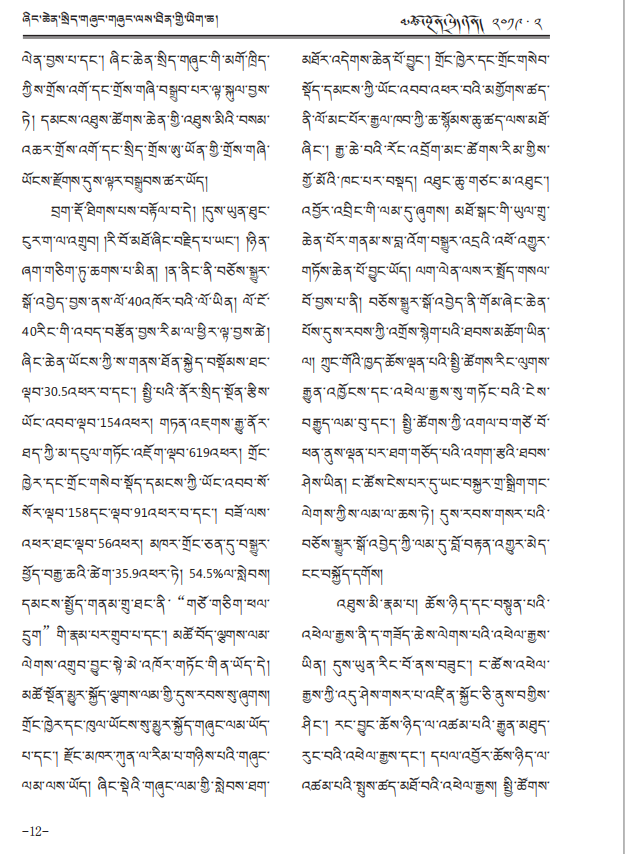 ཞིང་ཆེན་སྲིད་གཞུང་གཞུང་ལས་ཐོན་གྱི་ཡིག་ཆ།
༢༠༡༩ · ༢
ལེན་བྱས་པ་དང་། ཞིང་ཆེན་སྲིད་གཞུང་གི་མགོ་ཁྲིད་
ཀྱིས་གྲོས་འགོ་དང་གྲོས་གཞི་བསྒྲུབ་པར་ལྟ་སྐུལ་བྱས་
ཏེ། དམངས་འཐུས་ཚོགས་ཆེན་གྱི་འཐུས་མིའི་བསམ་
འཆར་གྲོས་འགོ་དང་སྲིད་གྲོས་ཨུ་ཡོན་གྱི་གྲོས་གཞི་
ཡོངས་རྫོགས་དུས་ལྟར་བསྒྲུབས་ཚར་ཡོད།
བྲག་རྡོ་ཐིགས་པས་བརྟོལ་བ་དེ། །དུས་ཡུན་ཐུང་
ངུར་ག་ལ་འགྲུབ། །རི་བོ་མཐོ་ཞིང་བརྗིད་པ་ཡང་། །ཉིན་
ཞག་གཅིག་ཏུ་ཆགས་པ་མིན། །ན་ནིང་ནི་བཅོས་སྒྱུར་
སྒོ་འབྱེད་བྱས་ནས་ལོ་40འཁོར་བའི་ལོ་ཡིན། ལོ་ངོ་
40རིང་གི་འབད་བརྩོན་བྱས་རིམ་ལ་ཕྱིར་ལྟ་བྱས་ཚེ།
ཞིང་ཆེན་ཡོངས་ཀྱི་ས་གནས་ཐོན་སྐྱེད་བསྡོམས་ཐང་
ལྡབ་30.5འཕར་བ་དང་། སྤྱི་པའི་ནོར་སྲིད་སྔོན་རྩིས་
ཡོང་འབབ་ལྡབ་154འཕར། གཏན་འཇགས་རྒྱུ་ནོར་
ཐད་ཀྱི་མ་དངུལ་གཏོང་འཇོག་ལྡབ་619འཕར། གྲོང་
ཁྱེར་དང་གྲོང་གསེབ་སྡོད་དམངས་ཀྱི་ཡོང་འབབ་སོ་
སོར་ལྡབ་158དང་ལྡབ་91འཕར་བ་དང་། བཟོ་ལས་
འཕར་ཐང་ལྡབ་56འཕར། མཁར་གྲོང་ཅན་དུ་བསྒྱུར་
ཕྱོད་བརྒྱ་ཆའི་ཚེག་35.9འཕར་ཏེ། 54.5%ལ་སླེབས།
དམངས་སྤྱོད་གནམ་གྲུ་ཐང་ནི་ “གཙོ་གཅིག་ཕལ་
དྲུག” གི་རྣམ་པར་གྲུབ་པ་དང་། མཚོ་བོད་ལྕགས་ལམ་
ལེགས་འགྲུབ་བྱུང་སྟེ་མེ་འཁོར་གཏོང་གིན་ཡོད་དེ།
མཚོ་སྔོན་མྱུར་སྐྱོད་ལྕགས་ལམ་གྱི་དུས་རབས་སུ་ཞུགས།
གྲོང་ཁྱེར་དང་ཁུལ་ཡོངས་སུ་མྱུར་སྐྱོད་གཞུང་ལམ་ཡོད་
པ་དང་། རྫོང་མཁར་ཀུན་ལ་རིམ་པ་གཉིས་པའི་གཞུང་
ལམ་ལས་ཡོད། ཞིང་སྡེའི་གཞུང་ལམ་གྱི་སླེབས་ཐག་
མཐོར་འདེགས་ཆེན་པོ་བྱུང་། གྲོང་ཁྱེར་དང་གྲོང་གསེབ་
སྡོད་དམངས་ཀྱི་ཡོང་འབབ་འཕར་བའི་མགྱོགས་ཚད་
ནི་ལོ་མང་པོར་རྒྱལ་ཁབ་ཀྱི་ཆ་སྙོམས་ཆུ་ཚད་ལས་མཐོ་
ཞིང་། རྒྱ་ཆེ་བའི་རོང་འབྲོག་མང་ཚོགས་རིམ་གྱིས་
གྱོ་མོའི་ཁང་པར་བསྡད། འཐུང་ཆུ་གཙང་མ་འཐུང་།
འབྱོར་འབྲིང་གི་ལམ་དུ་ཞུགས། མཐོ་སྒང་གི་ཡུལ་གྲུ་
ཆེན་པོར་གནམ་ས་བླ་འོག་བསྒྱུར་འདྲའི་འཕོ་འགྱུར་
གཏོས་ཆེན་པོ་བྱུང་ཡོད། ལག་ལེན་ལས་ར་སྤྲོད་གསལ་
པོ་བྱས་པ་ནི། བཅོས་སྒྱུར་སྒོ་འབྱེད་ནི་གོམ་ཞེང་ཆེན་
པོས་དུས་རབས་ཀྱི་འགྲོས་སྙེག་པའི་ཐབས་མཆོག་ཡིན་
ལ། ཀྲུང་གོའི་ཁྱད་ཆོས་ལྡན་པའི་སྤྱི་ཚོགས་རིང་ལུགས་
རྒྱུན་འཁྱོངས་དང་འཕེལ་རྒྱས་སུ་གཏོང་བའི་ངེས་
བརྒྱུད་ལམ་བུ་དང་། སྤྱི་ཚོགས་ཀྱི་འགལ་བ་གཙོ་བོ་
ཕན་ནུས་ལྡན་པར་ཐག་གཅོད་པའི་འགག་རྩའི་ཐབས་
ཤེས་ཡིན། ང་ཚོས་ངེས་པར་དུ་ཡང་བསྐྱར་གྲ་སྒྲིག་གང་
ལེགས་ཀྱིས་ལམ་ལ་ཆས་ཏེ། དུས་རབས་གསར་པའི་
བཅོས་སྒྱུར་སྒོ་འབྱེད་ཀྱི་ལམ་དུ་བློ་བརྟན་འགྱུར་མེད་
ངང་བསྐྱོད་དགོས།
འཐུས་མི་རྣམ་པ། ཆོས་ཉིད་དང་བསྟུན་པའི་
འཕེལ་རྒྱས་ནི་ད་གཟོད་ཆེས་ལེགས་པའི་འཕེལ་རྒྱས་
ཡིན། དུས་ཡུན་རིང་པོ་ནས་བཟུང་། ང་ཚོས་འཕེལ་
རྒྱས་ཀྱི་འདུ་ཤེས་གསར་པ་འཛིན་སྐྱོང་ཅི་ནུས་བགྱིས་
ཤིང་། རང་བྱུང་ཆོས་ཉིད་ལ་འཚམ་པའི་རྒྱུན་མཐུད་
རུང་བའི་འཕེལ་རྒྱས་དང་། དཔལ་འབྱོར་ཆོས་ཉིད་ལ་
འཚམ་པའི་སྤུས་ཚད་མཐོ་བའི་འཕེལ་རྒྱས། སྤྱི་ཚོགས་
-12-